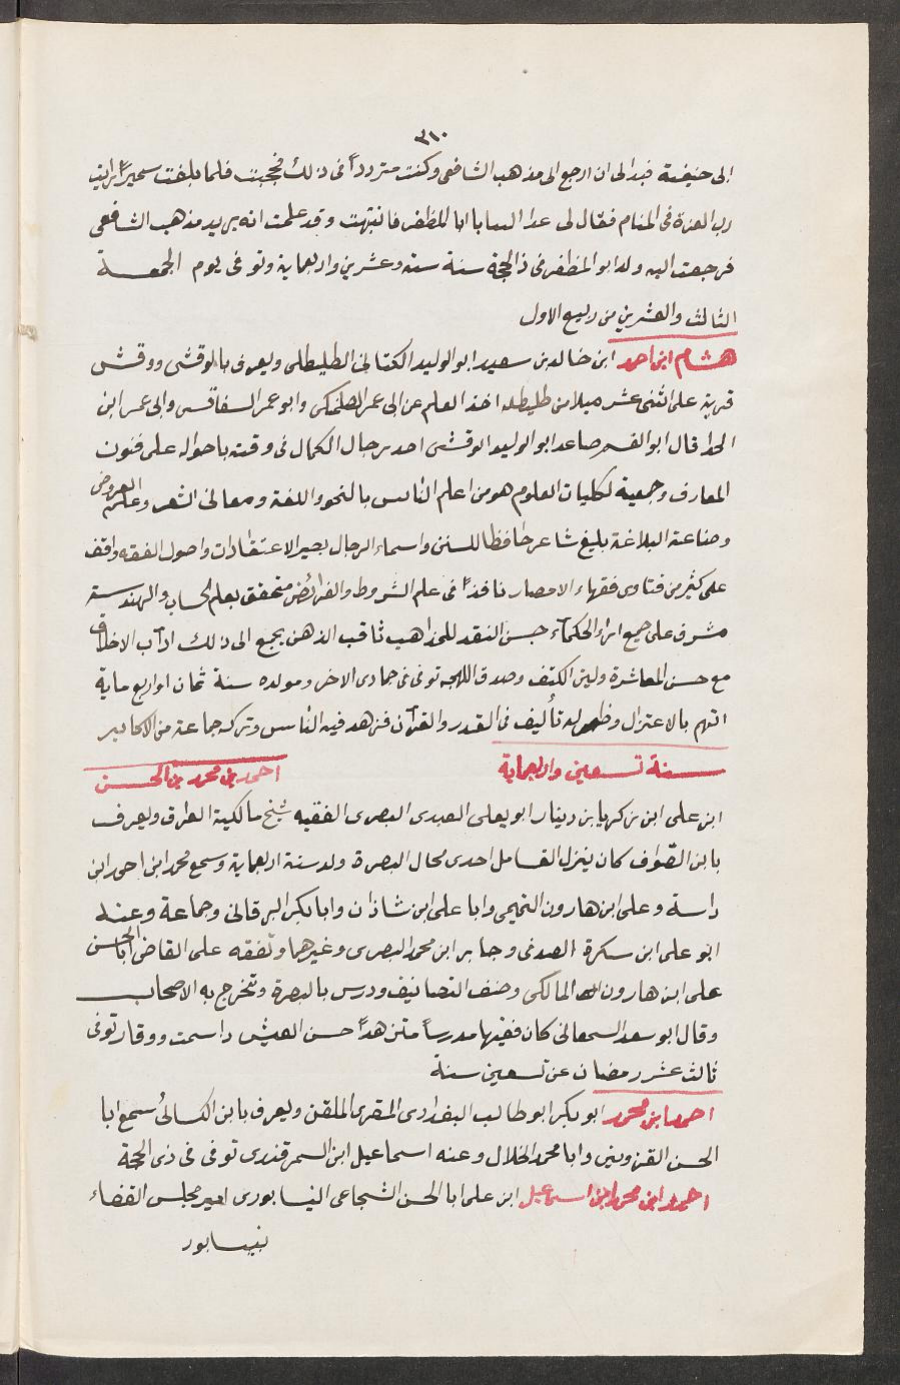 ٣١٠
الى حنيفة فبدالى ان ارجع الى مذهب الشافعى وكنت مترددا فى ذلك فحججت فلما بلغت سميراً رايت
رب العزة فى المنام فقال لى عد الينا يا ابا المظفر فانتبهت وقد علمت انه يريد مذهب الشافعى
فرجعت اليه ولد ابو المظفر فى ذالحجة سنة ستة وعشرين واربعماية وتوفى يوم الجمعة
الثالث والعشرين من ربيع الاول
هشام ابن احمد ابن خالد بن سعيد ابو الوليد الكتانى الطليطلى ويعرف بالوقشى ووقش
قرية على اثنى عشر ميلا من طليطله اخذ العلم عن ابى عمر الطلمنكى وابو عمر السفاقسى وابى عمر ابن
الحذا قال ابو القسم صاعد ابو الوليد الوقشى احد رجال الكمال فى وقته باحواله على فنون
المعارف وجمعية لكليات العلوم هو من اعلم الناس بالنحو واللغة ومعانى الشعر وعلم العروض
وصناعة البلاغة بليغ شاعر حافظا للسنن واسماء الرجال بصير الاعتقادات واصول الفقه واقف
على كثير من فتاوى فقهاء الامصار نافذاً فى علم الشروط والفرائض متحقق بعلم الحساب والهندسة
مشرف على جميع اراء الحكمآء حسن النقد للمذاهب ثاقب الذهن يجمع الى ذلك اداب الاخلاق
مع حسن المعاشرة ولين الكتف وصدق اللهجه توفى فى جمادى الاخر ومولده سنة ثمان اواربع ماية
اتهم بالاعتزال وظهر له تأليف فى القدر والقرآن فزهد فيه الناس وتركه جماعة من الاكابير
سنة تسعين واربعماية احمد بن محمد بن الحسن
ابن على ابن زكريا بن دينار ابو يعلى العبدى البصرى الفقيه شيخ مالكية العراق ويعرف
بابن الصّواف كان ينزل القسامل احدى محال البصرة ولد سنة اربعماية وسمع محمد ابن احمد ابن
داسة وعلى ابن هارون التيمى وابا على ابن شاذان وابا بكر البرقانى وجماعة وعنه
ابو على ابن سكرة الصدفى وجابر ابن محمد البصرى وغيرهما وتفقه على القاضى ابا الحسن
على ابن هارون المالكى وصنف التصانيف ودرس بالبصرة وتخرج به الاصحاب
وقال ابو سعد السمعانى كان فقيها مدرساً متزهداً حسن العيش ذا سمت ووقار توفى
ثالث عشر رمضان عن تسعين سنة
احمد ابن محمد ابو بكر ابو طالب البغدادى المقرى الملقن ويعرف بابن الكسائى سمع ابا
الحسن القزوينى وابا محمد الخلال وعنه اسماعيل ابن السمرقندى توفى فى ذى الحجة
احمد ابن محمد ابن اسماعيل ابن على ابا الحسن الشجاعى النيسابورى امير مجلس القضاء
نيسابور